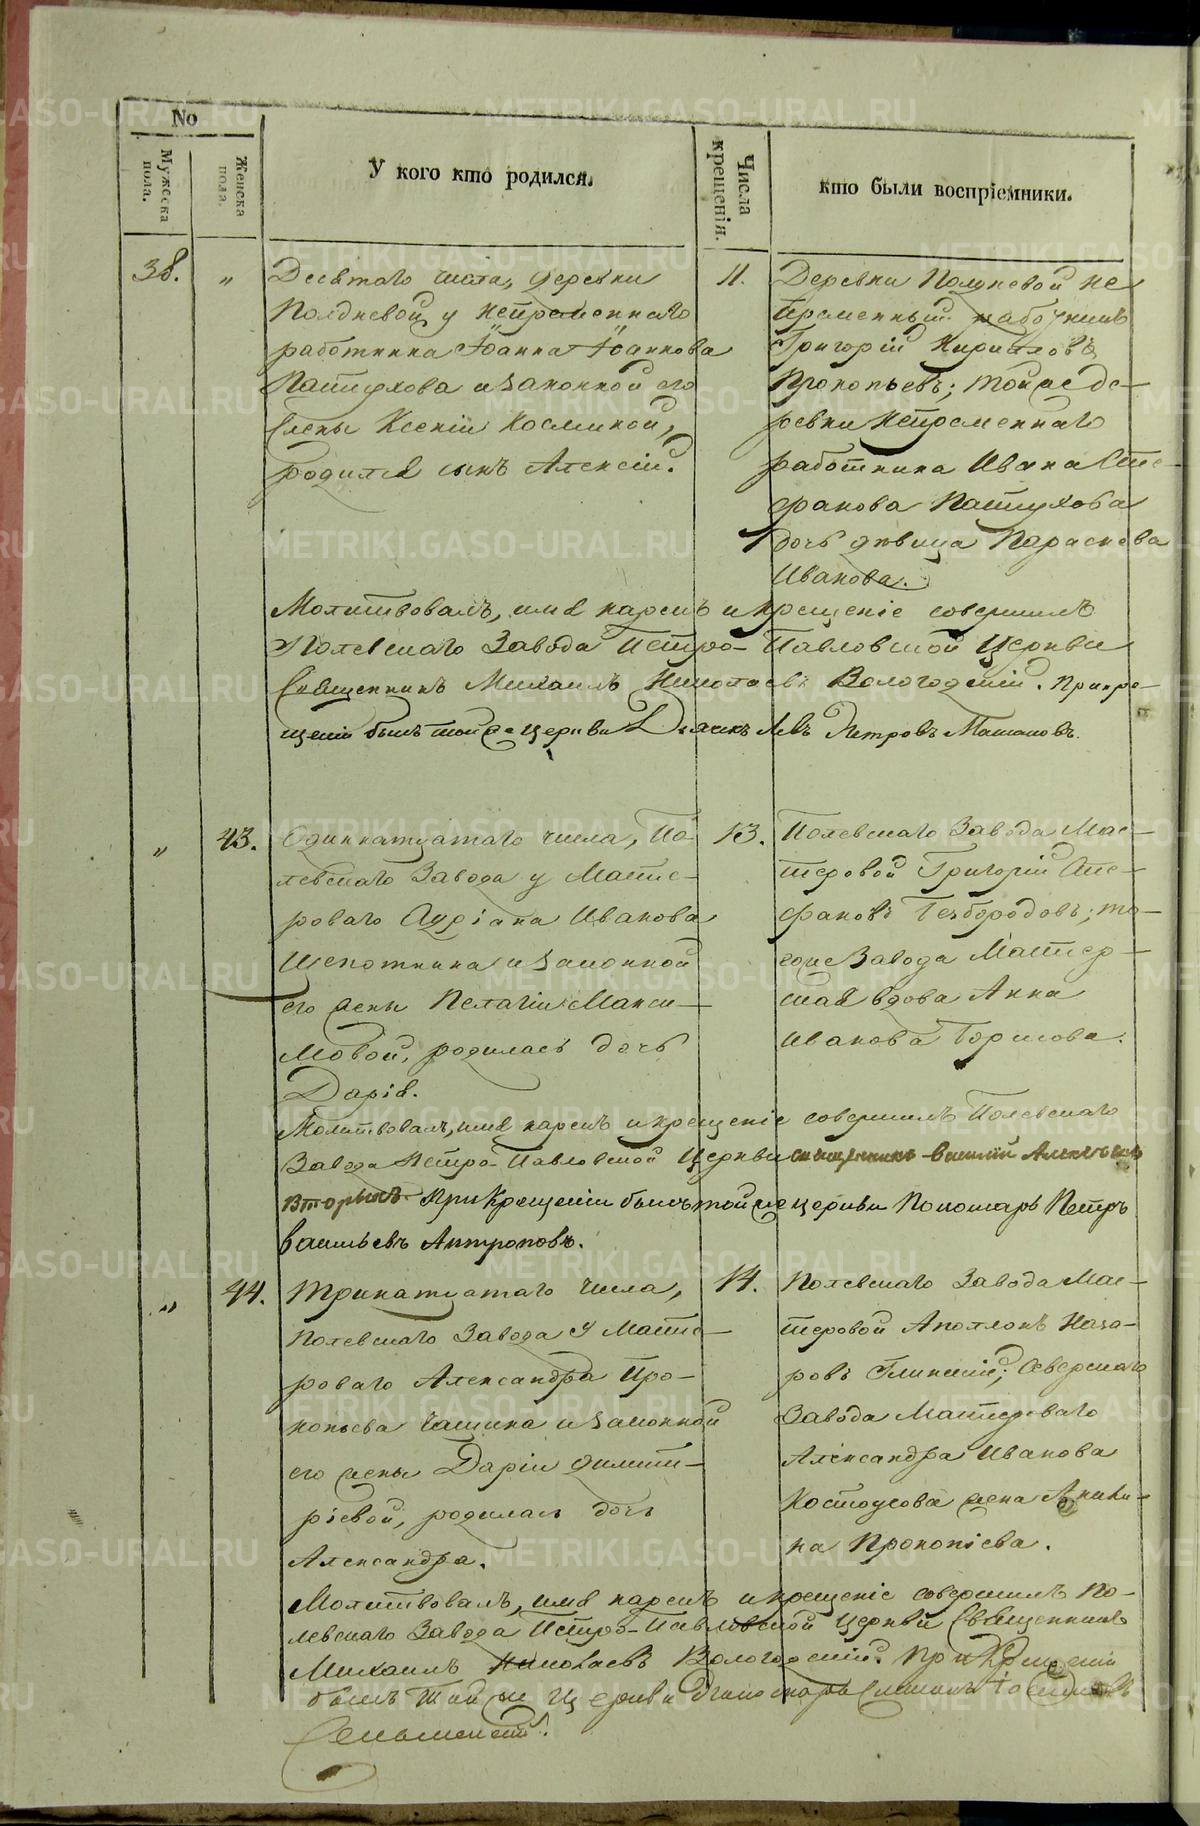 No
Мужеска пола.
Женска пола.
У кого кто родился.
Числа крещенія.
кто были воспріемники.
38.
"
Десятаго числа, деревни
Полдневой у непременнаго
работника Іоанна Іоаннова
Пастухова и законной его
жены Ксеніи Косминой,
родился сынъ Алексій.
11.
Деревни Полдневой не-
пременный работникъ
Григорій Кириловъ
Прокопьевъ; той же де-
ревни непременнаго
работника Ивана Сте-
фанова Пастухова
дочь девица Параскева
Иванова.
Молитвовалъ, имя нарекъ и крещеніе совершилъ
Полевскаго Завода Петро-Павловской Церкви
Священникъ Михаилъ Николаевъ Вологодскій. При кре-
щеніи былъ той же церкви Дьячекъ Левъ Петровъ
"
43.
Одиннатцатаго числа, По-
левскаго Завода у Масте-
роваго Адріана Иванова
Щепоткина и законной
его жены Пелагіи Макси-
мовой, родилась дочь
Дарія.
13.
Полевскаго Завода Мас-
теровой Григорій Сте-
фановъ Безбородовъ; то-
гоже Завода Мастер-
ская вдова Анна
Иванова Борисова.
Молитвовалъ, имя нарекъ и крещеніе совершилъ Полевскаго
Завода Петро-Павловской Церкви священникъ Василій
Вторыхъ. При Крещеніи былъ той же церкви Пономарь Петръ
Васильевъ Антроповъ.
"
44.
Тринатцатаго числа,
Полевскаго Завода у Масте-
роваго Александра Про-
копьева Чашина и законной
его жены Даріи Димит-
ріевой, родилась дочь
Александра.
14.
Полевскаго Завода Мас-
теровой Аполлонъ Наза-
ровъ Глинскій; Северскаго
Завода Мастероваго
Александра Иванова
Костоусова жена
Прокопіева.
Молитвовалъ, имя нарекъ и крещеніе совершилъ По-
левскаго Завода Петро-Павловской Церкви Священникъ
Михаилъ Николаевъ Вологодскій. При Крещеніи
былъ той же Церкви
METRIKI.GASO-URAL.RU